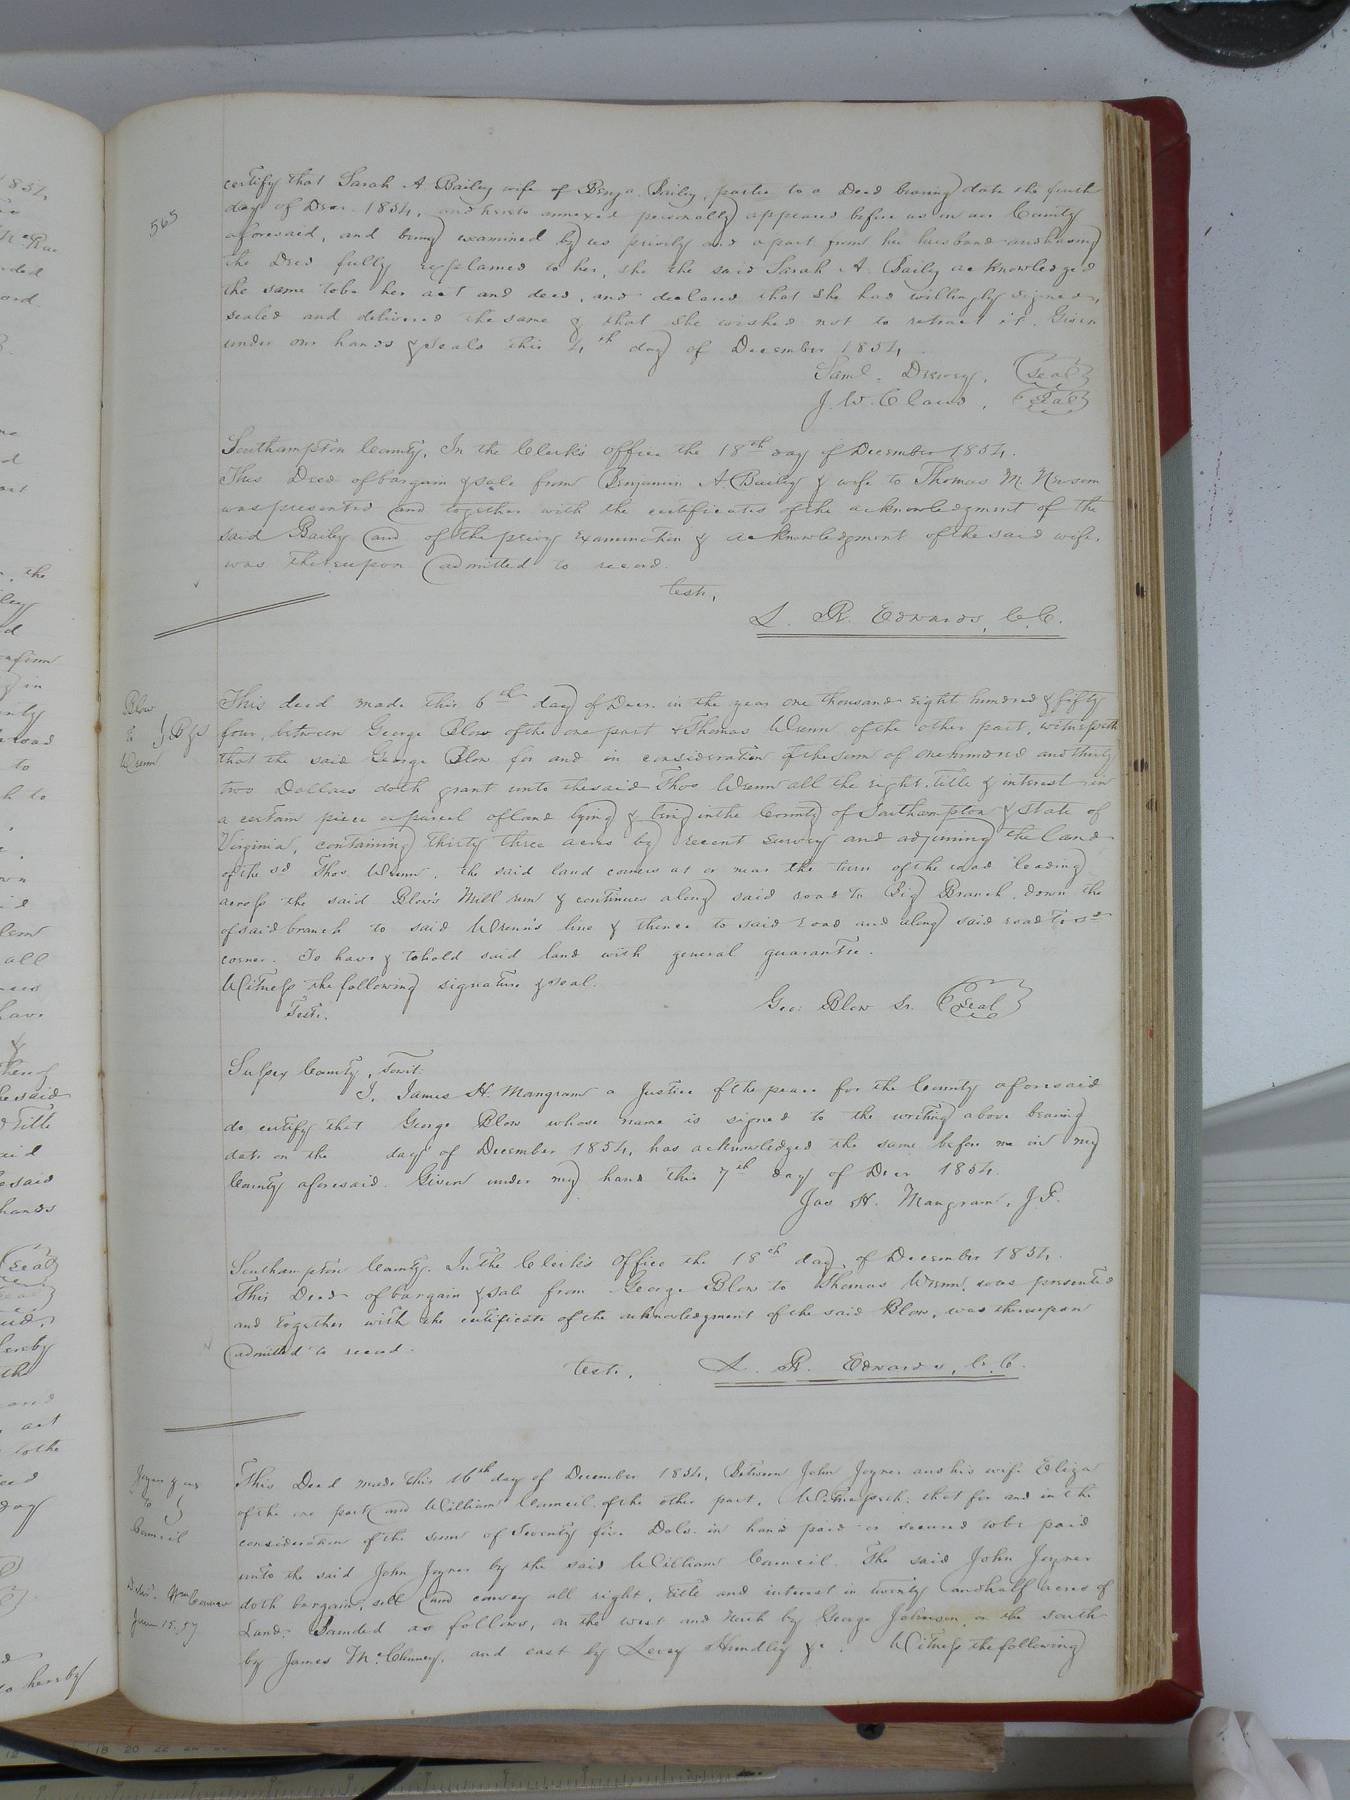 565
certify that Sarah A Bailey wife of Benja. Bailey, partie to a Deed bearing date the fourth
day of Decr. 1854, and hereto annexed personally appeared before us in our County
aforesaid, and being examined by us privily and apart from her husband and having
the Deed fully explained to her, she the said Sarah A. Bailey acknowledged
the same to be her act and deed, and declared that she had willingly signed,
sealed and delivered the same & that she wished not to retract it. Given
under our hands & seals this 4th day of December 1854
Saml. Drewry, Seal
J. W. Claud, Seal
Southampton County, In the Clerk's office the 18th day of December 1854.
This Deed of bargain & sale from Benjamin A Bailey & wife to Thomas M Newsom
was presented and together with the certificates of the acknowledgment of the
said Bailey and of the privy examination & acknowledgment of the said wife,
was thereupon admitted to record.
teste,
L. R. Edwards, C.C.
Blow
to
Wrenn
This deed made this 6th day of Decr. in the year one thousand eight hundred & fifty
four, between George Blow of the one part & Thomas Wrenn of the other part, witnesseth
that the said George Blow for and in consideration of the sum of one hundred and thirty
two Dollars doth grant unto the said Thos Wrenn all the right, title & interest in
a certain piece or parcel of land lying & being in the County of Southampton & State of
Virginia, containing thirty three acres by recent survey and adjoining the land
of the sd Thos. Wrenn, the said land corners at or near the turn of the road leading
across the said Blow's Mill run & continues along said road to Big Branch, down the
of said branch to said Wrenn's line & thence to said road and along said road to sd
corner. To have & to hold said land with general guarantee.
Witness the following signature & seal.
Teste.
Geo: Blow Sr. Seal
Sussex County, towit:
I, James H. Mangram a Justice of the peace for the County aforesaid
do certify that George Blow whose name is signed to the writing above bearing
date on the day of December 1854, has acknowledged the same before me in my
County aforesaid. Given under my hand this 7th day of Decr 1854.
Jas H. Mangram, J.P.
Southampton County. In the Clerk's Office the 18th day of December 1854.
This Deed of bargain & sale from George Blow to Thomas Wrenn was presented
and together with the certificate of the acknowledgment of the said Blow, was thereupon
admitted to record.
teste, L. R. Edwards, C.C.
Joyner & ux
to
Council
This Deed made this 16th day of December 1854, Between John Joyner and his wife Eliza
of the one part and William Council of the other part, Witnesseth: that for and in the
consideration of the sum of Seventy five Dols. in hand paid or secured to be paid
unto the said John Joyner by the said William Council. The said John Joyner
Wm Council
June 15. 57
doth bargain, sell and convey all right, title and interest in twenty and half acres of
Land. Bounded as follows, on the west and North by George Johnson, on the south
by James McChinney, and east by Levey Hundley &c. Witness the following